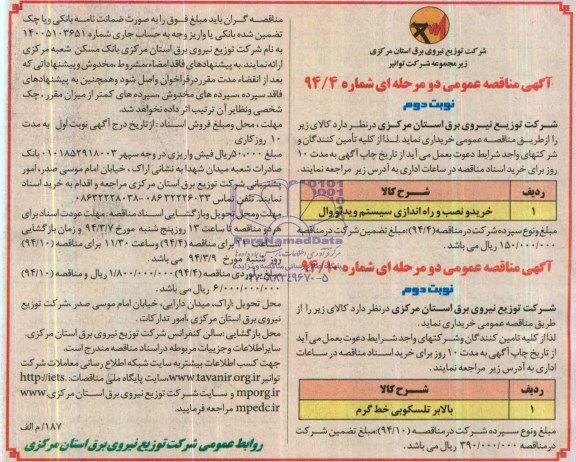 شرکت توزیع نیروی برق استان مرکزی
زیر مجموعه شرکت توانیر
آگهی مناقصه عمومی دو مرحله ای شماره ۹۴/۴
نوبت دوم
شرکت توزیع نیروی برق استان مرکزی درنظر دارد کالای زیر
را ازطریق مناقصه عمومی خریداری نماید. لذا از کلیه تأمین کنندگان و
شرکتهای واجد شرایط دعوت بعمل می آید از تاریخ چاپ آگهی به مدت ۱۰
روز برای خرید اسناد مناقصه در ساعات اداری به آدرس زیر مراجعه نمایند.
ردیف شرح کالا
۱ خرید و نصب و راه اندازی سیستم ویدئو وال
مبلغ ونوع سپرده شرکت درمناقصه (۹۴/۴): مبلغ تضمین شرکت در مناقصه
۱۵۰/۰۰۰/۰۰۰ ریال می باشد.
آگهی مناقصه عمومی دو مرحله ای شماره ۹۴/۱۰
نوبت دوم
شرکت توزیع نیروی برق استان مرکزی درنظر دارد کالای زیر را از
طریق مناقصه عمومی خریداری نماید.
لذا از کلیه تأمین کنندگان وشرکتهای واجد شرایط دعوت بعمل می آید
از تاریخ چاپ آگهی به مدت ۱۰ روز برای خرید اسناد مناقصه در ساعات
اداری به آدرس زیر مراجعه نمایند.
ردیف شرح کالا
۱ بالابر تلسکوپی خط گرم
مبلغ ونوع سپرده شرکت در مناقصه (۹۴/۱۰): مبلغ تضمین شرکت در
مناقصه ۳۹۰/۰۰۰/۰۰۰ ریال می باشد.
مناقصه گران باید مبلغ فوق را به صورت ضمانت نامه بانکی ویا چک
تضمین شده بانکی یا واریز وجه به حساب جاری شماره ۱۴۰۰۵۱۰۳۶۵۱
به نام شرکت توزیع نیروی برق استان مرکزی بانک مسکن شعبه مرکزی
ارائه نمایند. به پیشنهادهای فاقد امضاء، مشروط، مخدوش و پیشنهاداتی که
بعد از انقضاء مدت مقرر در فراخوان واصل شود و همچنین به پیشنهادهای
فاقد سپرده، سپرده های مخدوش، سپرده های کمتر از میزان مقرر، چک
شخصی ونظایر آن ترتیب اثر داده نخواهد شد.
مهلت، محل ومبلغ فروش اسناد: از تاریخ درج آگهی نوبت اول به مدت
۱۰ روز کاری
مبلغ ۵۰۰/۰۰۰ ریال فیش واریزی در وجه سپهر ۰۱۰۱۸۵۲۹۱۸۰۰۳ بانک
صادرات شعبه میدان شهدا به نشانی اراک، خیابان امام موسی صدر، امور
پشتیبانی شرکت توزیع برق استان مرکزی مراجعه و اقدام به خرید اسناد
نمایند. تلفن تماس
مهلت ومحل تحویل وبازگشایی اسناد مناقصه: مهلت عودت اسناد برای
هر دو مناقصه تا ساعت ۱۳ روز پنج شنبه مورخ ۹۴/۳/۷ و زمان بازگشایی
برای مناقصه (۹۴/۴) وساعت ۱۱/۳۰ برای مناقصه (۹۴/۱۰)
روز شنبه مورخ ۹۴/۳/۹ می باشد.
(۹۴/۴) ۱/۸۰۰/۰۰۰/۰۰۰ ریال و مناقصه (۹۴/۱۰)
۶/۰۰۰/۰۰۰/۰۰۰ ریال می باشد.
محل تحویل: اراک، میدان دارایی، خیابان امام موسی صدر، شرکت توزیع
نیروی برق استان مرکزی، امور تدارکات.
محل بازگشایی: سالن کنفرانس شرکت توزیع نیروی برق استان مرکزی.
سایر اطلاعات وجزییات مربوطه در اسناد مناقصه مندرج است.
جهت کسب اطلاعات بیشتر به سایت شبکه اطلاع رسانی معاملات شرکت
توانیر www.tavanir.org.ir، سایت پایگاه ملی مناقصات: http://iets.
mporg.ir و سایت شرکت توزیع نیروی برق استان مرکزی www.
mpedc.ir مراجعه فرمایید.
۱۸۷/م الف
روابط عمومی شرکت توزیع نیروی برق استان مرکزی
ParsNamadData